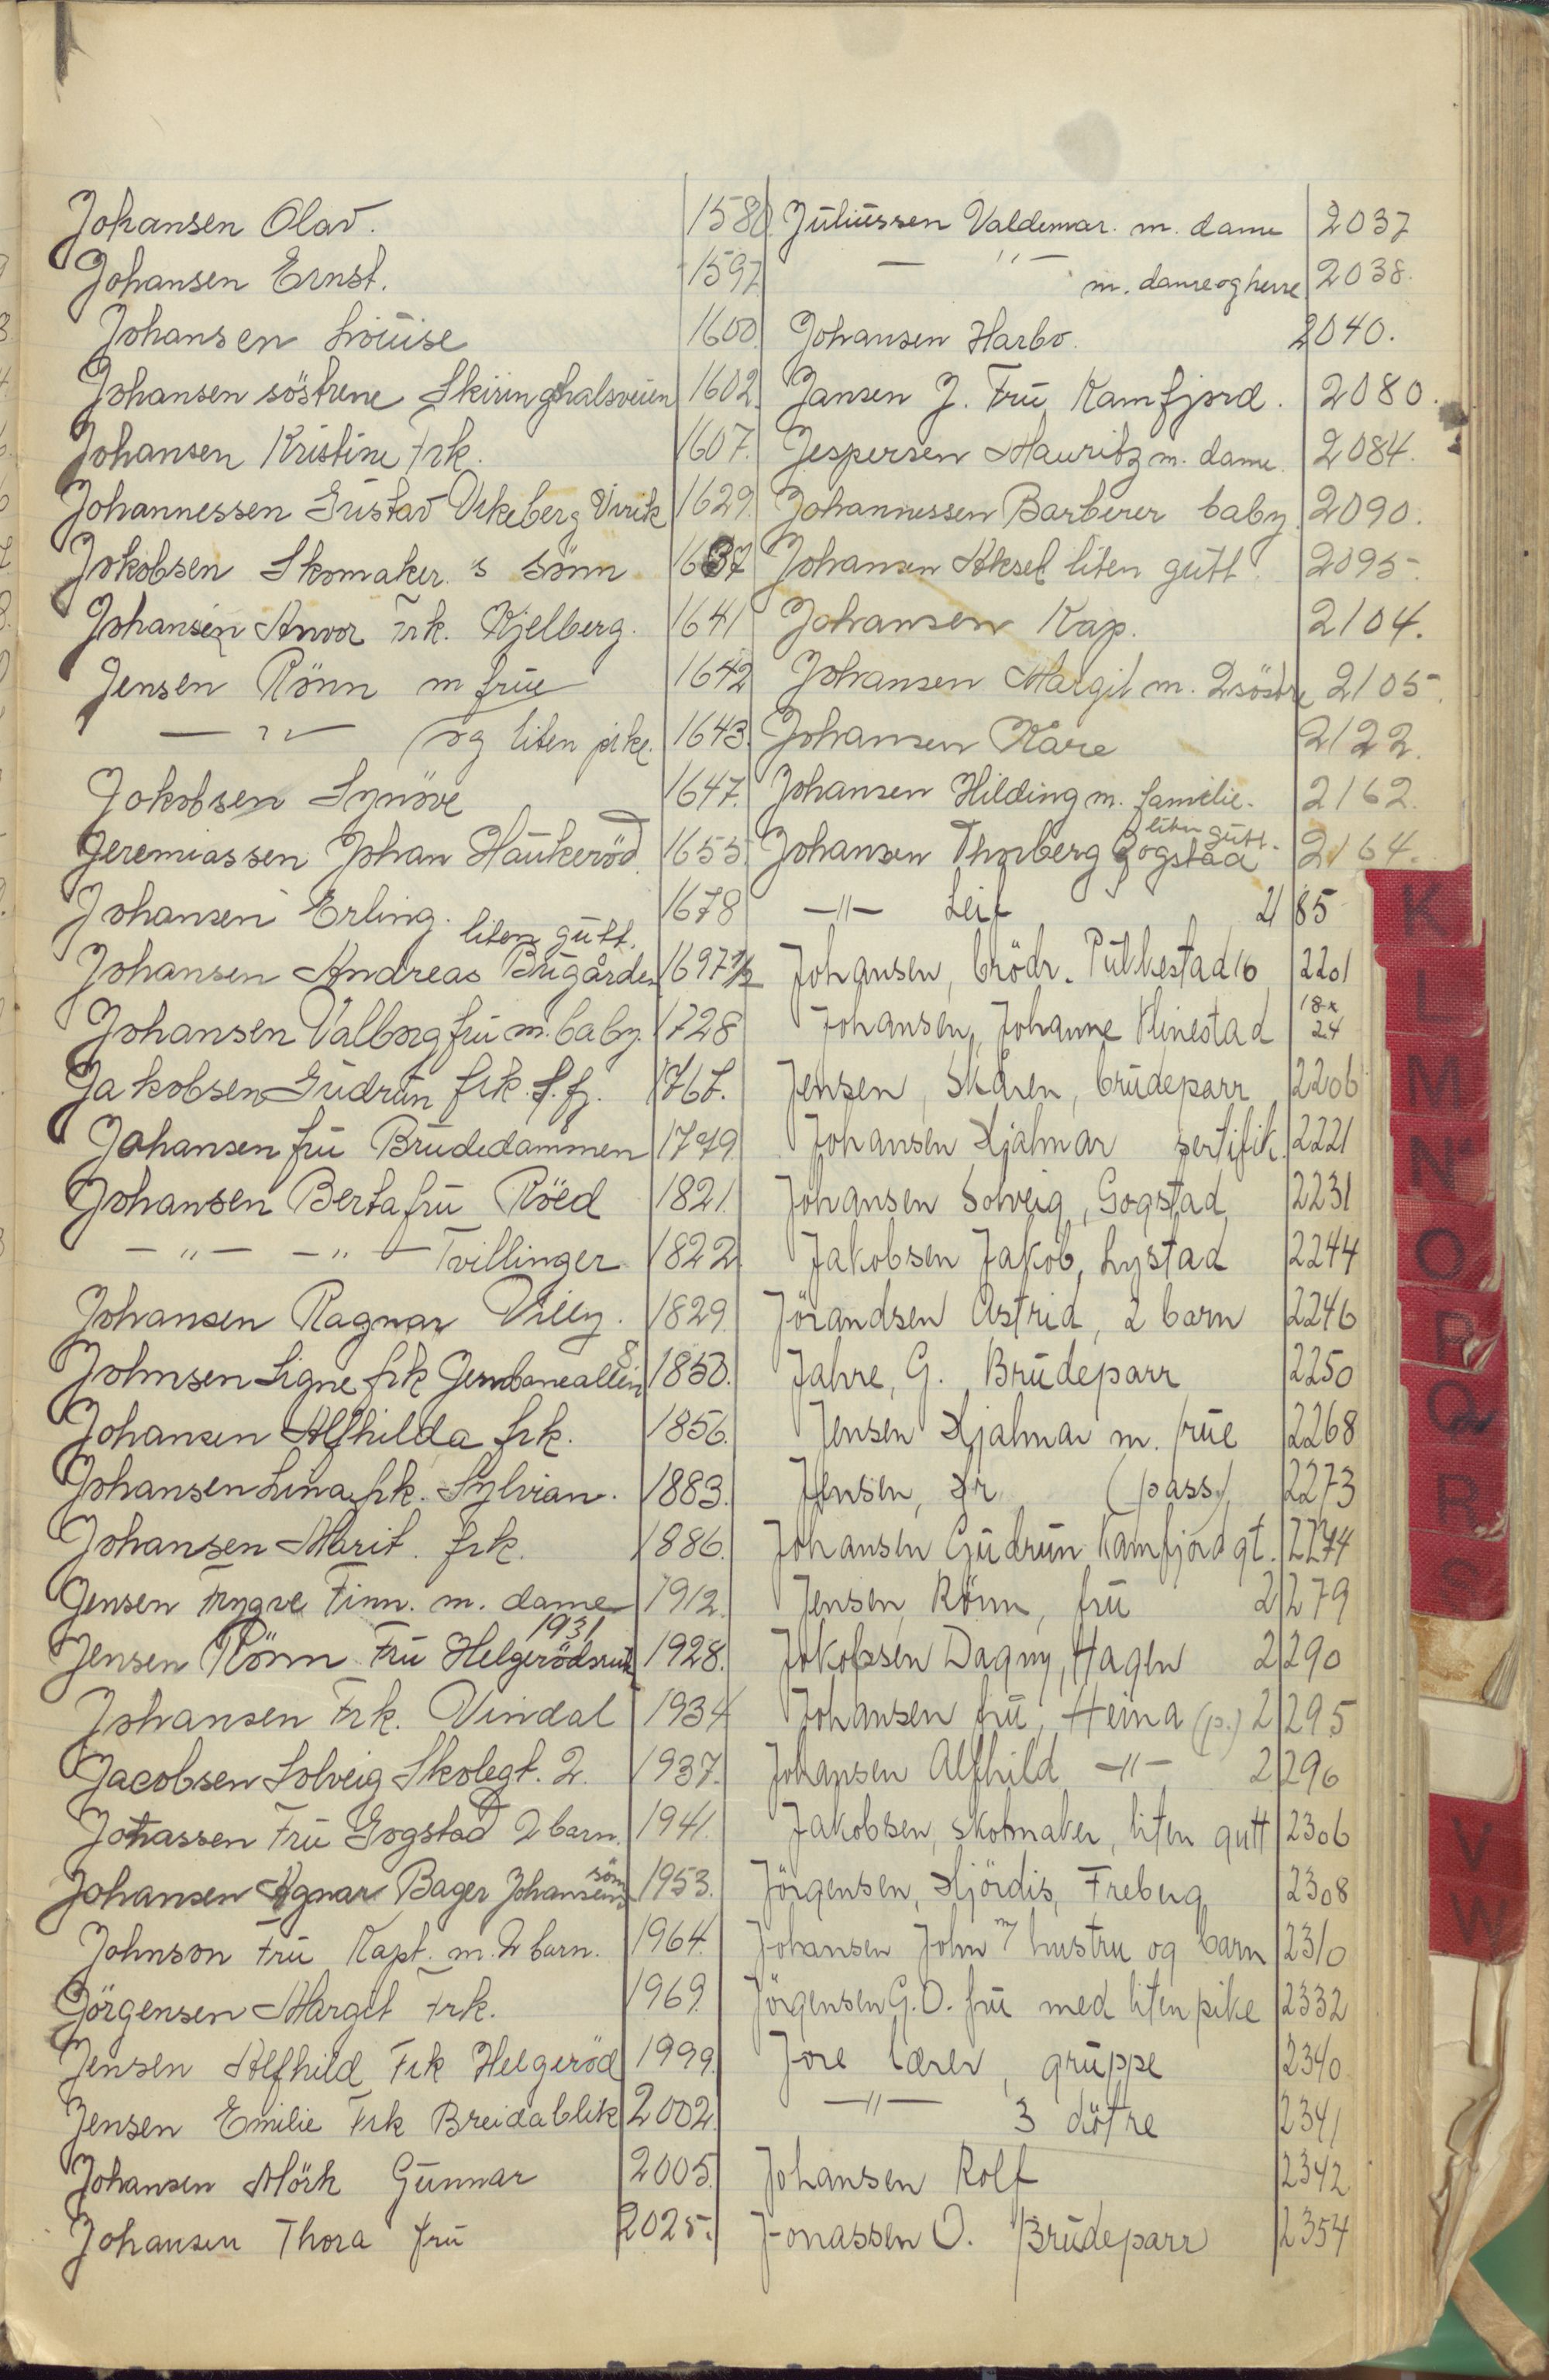 Johansen Olav. 1580.
Johansen Ernst. 1597.
Johansen Louise 1600.
Johansen söstrene Skiringshalsveien 1602.
Johansen Kristine Frk. 1607.
Johannessen Gustav Virkeberg Virik 1629.
Jokobsen Skomaker s sönn 1637
Johansen Anvor Frk. Kjelberg. 1641
Jensen Rönn m frue 1642
— " — og liten pike. 1643.
Jokobsen Synöve 1647.
Jeremiassen Johan Haukeröd. 1655.
Johansen Erling. 1678
liten gutt.
Johansen Andreas Bugården 1697 1/2
Johansen Valborg fru m. baby. 1728
Jakobsen Gudrun frk. S.fj. 1767.
Johansen fru Brudedammen 1779.
Johansen Berta fru Röed 1821.
— " — — " — Tvillinger 1822.
Johansen Ragnar Villy. 1829.
Johnsen Signe frk Jernbanealleen 8 1853.
Johansen Alfhilda frk. 1856.
Johansen Lina frk. Sylvian. 1883.
Johansen Marit. frk. 1886.
Jensen Trygve Finn. m. dame 1912.
1931
Jensen Rönn Fru Helgerödsrud 1928.
Johansen Frk. Vindal 1934
Jacobsen Solveig Skolegt. 2. 1937.
Johassen Fru Gogstad 2 barn. 1941.
sön
Johansen Agnar Bager Johansens 1953.
Johnson Fru Kapt. m. 2 barn. 1964.
Jörgensen Margit Frk. 1969.
Jensen Alfhild Frk Helgeröd 1999.
Jensen Emilie Frk Breidablik 2002.
Johansen Mörk Gunnar 2005.
Johansen Thora fru 2025.
Juliussen Valdemar. m. dame 2037
— " — m. dame og herre 2038.
Johansen Harbo. 2040.
Jansen J. Fru Kamfjord. 2080.
Jespersen Mauritz m. dame. 2084.
Johannessen Barberer baby. 2090.
Johansen Aksel liten gutt. 2095.
Johansen Kap. 2104.
Johansen Margit m. 2 söstre 2105.
Johansen Kåre 2122.
Johansen Hilding m. familie. 2162.
liten gutt.
Johansen Thorberg Gogstad 2164.
—"— Leif 2185
Johansen, brödr. Pukkestad 16 2201
Johansen, Johanne Klinestad 18x24
Jensen, Skåren, brudeparr 2206
Johansen Hjalmar sertifik. 2221
Johansen Solveig, Gogstad 2231
Jakobsen Jakob, Lystad 2244
Jörandsen Astrid, 2 barn 2246
Jahre, G. Brudeparr 2250
Jensen Hjalmar m. frue 2268
Jensen, Hr (pass) 2273
Johansen Gudrun Kamfjordgt. 2274
Jensen, Rönn, fru 2279
Jokobsen Dagny, Hagen 2290
Johansen fru, Heina (p.) 2295
Johansen Alfhild —"— 2296
Jakobsen, skomaker, liten gutt 2306
Jörgensen, Hjördis, Freberg 2308
Johansen John m/ hustru og barn 2310
Jörgensen G.O. fru med liten pike 2332
Jore lærer, gruppe 2340
—"— 3 døtre 2341
Johansen Rolf 2342
Jonassen O. Brudeparr 2354
K
L
M
N
O
P
Q
R
S
V
W